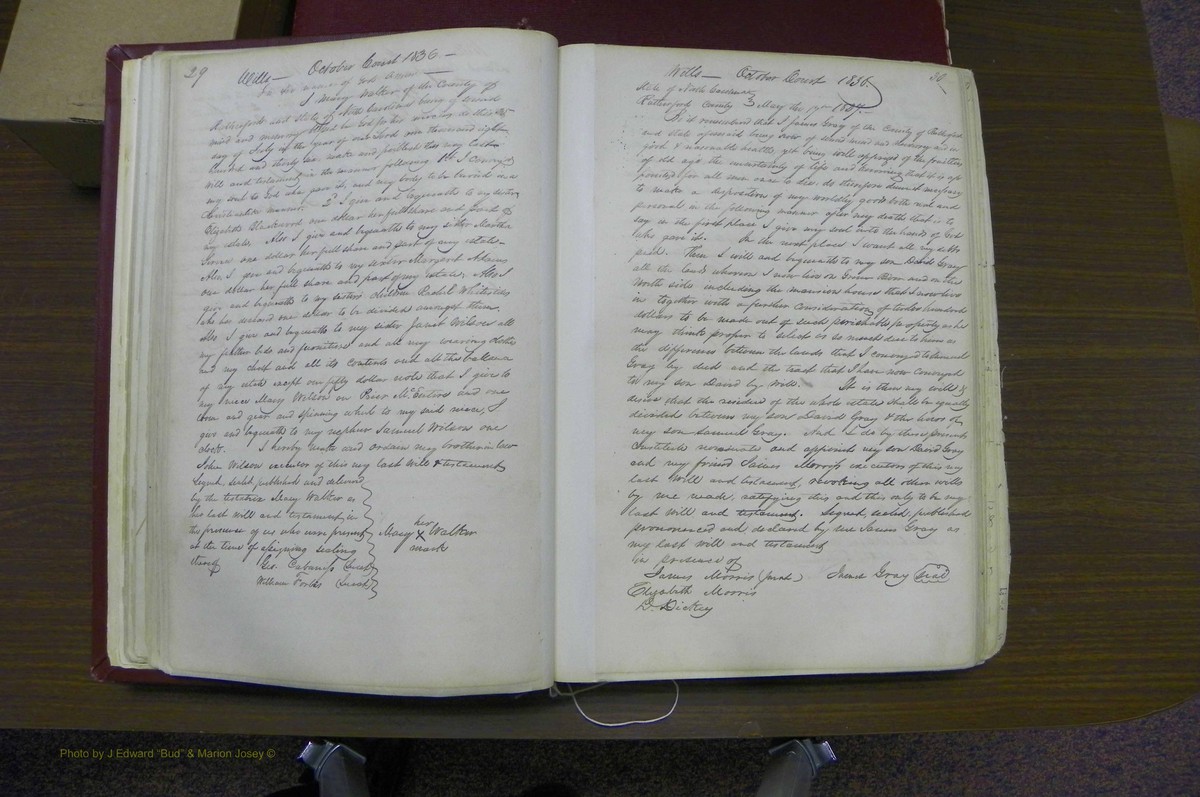 29 Wills — October Court 1836 —
In the name of God Amen
I Mary Walker of the County of
Rutherford and State of North Carolina being of sound
mind and memory
day of July in the year of our Lord one thousand eight
hundred and thirty six make and publish this my last
will and testament in the manner following 1st I commit
my soul to God who gave it and my body to be buried in a
Christian manner. 2d I give and bequeathe to my sister
Elizabeth Blackwood one dollar her full share and part of
my estate. Also I give and bequeathe to my sister Martha
one dollar her full share and part of my estate —
Also I give and bequeathe to my sister Margaret Adams
one dollar her full share and part of my estate. Also I
give and bequeathe to my sisters children Rachel Whitesides
one dollar to be divided amongst them
Also I give and bequeathe to my sister Janet Wilson all
my feather beds and furniture and all my wearing clothes
and my chest and all its contents and all the balance
of my estate except one fifty dollar note that I give to
my niece Mary Wilson on
loom and gear and spinning wheel to my said niece, I
give and bequeathe to my nephew Samuel Wilson one
clock. I hereby make and ordain my brother in law
John Wilson executor of this my last will & testament
Signed, sealed, published and delivered
by the testatrix Mary Walker as
her last will and testament in
the presence of us who were present
at the time of signing sealing
thereof
Geo. Cabaniss (Jurat)
William Forbs (Jurat)
her
Mary X Walker
mark
Wills — October Court 1836 30
State of North Carolina
Rutherford County May the
Be it remembered that I James Gray of the County of Rutherford
and state aforesaid being now of sound mind and memory and in
good & reasonable health, yet being well apprized of the frailties
of old age the uncertainty of life and knowing that it is ap
pointed for all men once to die, do therefore deem it necessary
to make a disposition of my worldly goods both real and
personal in the following manner after my death that is to
say in the first place I give my soul into the hands of God
who gave it. In the next place I want all my debts
paid. Then I will and bequeathe to my son David Gray
all the lands whereon I now live on Green River and on the
North side including the mansion house that I now live
in together with a further consideration of twelve hundred
dollars to be made out of such perishable property as he
may think proper to select or so much due to him as
the difference between the lands that I conveyed to Samuel
Gray by deed and the tract that I have now conveyed
to my son David by Will. It is then my will &
desire that the residue of the whole estate shall be equally
divided between my son David Gray & the heirs of
my son Samuel Gray. And I do by these presents
Constitute nominate and appoint my son David Gray
and my friend James Morris executors of this my
last Will and testament, revoking all other wills
by me made, ratifying this and this only to be my
last Will and testament. Signed, sealed, published
pronounced and declared by me James Gray as
my last will and testament
in presence of
James Morris (Jurat) James Gray (seal)
Elizabeth Morris
D. Dickey
Photo by J Edward "Bud" & Marion Josey ©